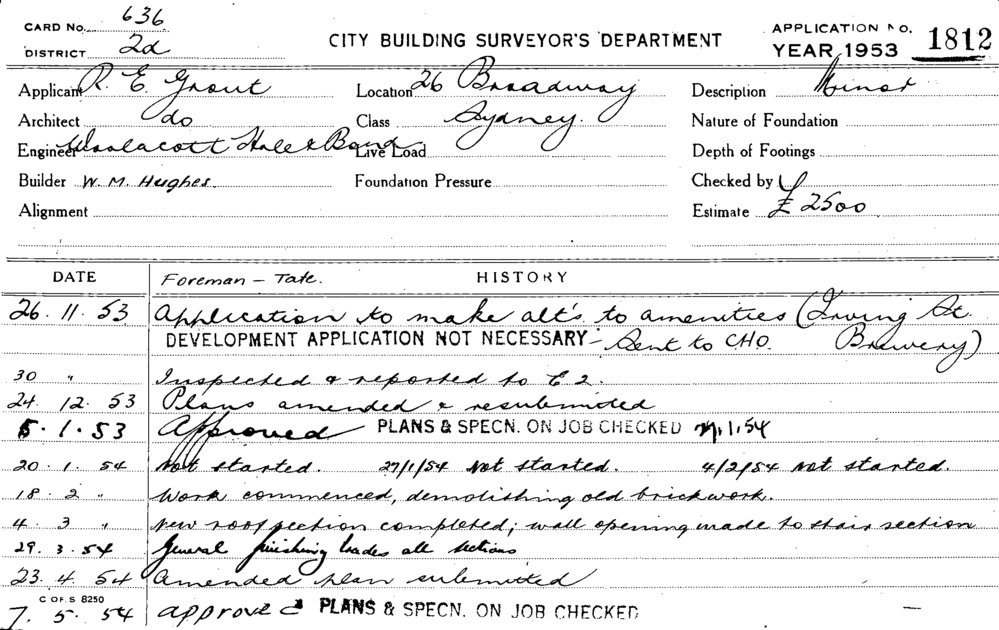 CARD No. 636
DISTRICT 2d
CITY BUILDING SURVEYOR'S DEPARTMENT
APPLICATION No. 1812
YEAR 1953
Applicant R. E. Grout Location 26 Broadway Description Minor
Architect do Class Sydney. Nature of Foundation
Engineer Woolacott Hale & Bond Live Load Depth of Footings
Builder W. M. Hughes. Foundation Pressure Checked by
Alignment Estimate £ 2500
DATE Foreman - Tate. HISTORY
26. 11. 53 Application to make alt's to amenities (Irving St.
DEVELOPMENT APPLICATION NOT NECESSARY - Sent to CHO. Brewery)
30 " Inspected & reported to E 2.
24. 12. 53 Plans amended & resubmitted
5. 1. 53 Approved PLANS & SPECN. ON JOB CHECKED 1.54
20. 1. 54 Not started. 27/1/54 Not started. 4/2/54 Not started.
18. 2 " Work commenced, demolishing old brickwork.
4. 3 " New roof section completed; wall opening made to stair section
29. 3. 54 General finishing trades all sections
23. 4. 54 Amended plan submitted
C OF. S 8250
7. 5. 54 approved PLANS & SPECN. ON JOB CHECKED